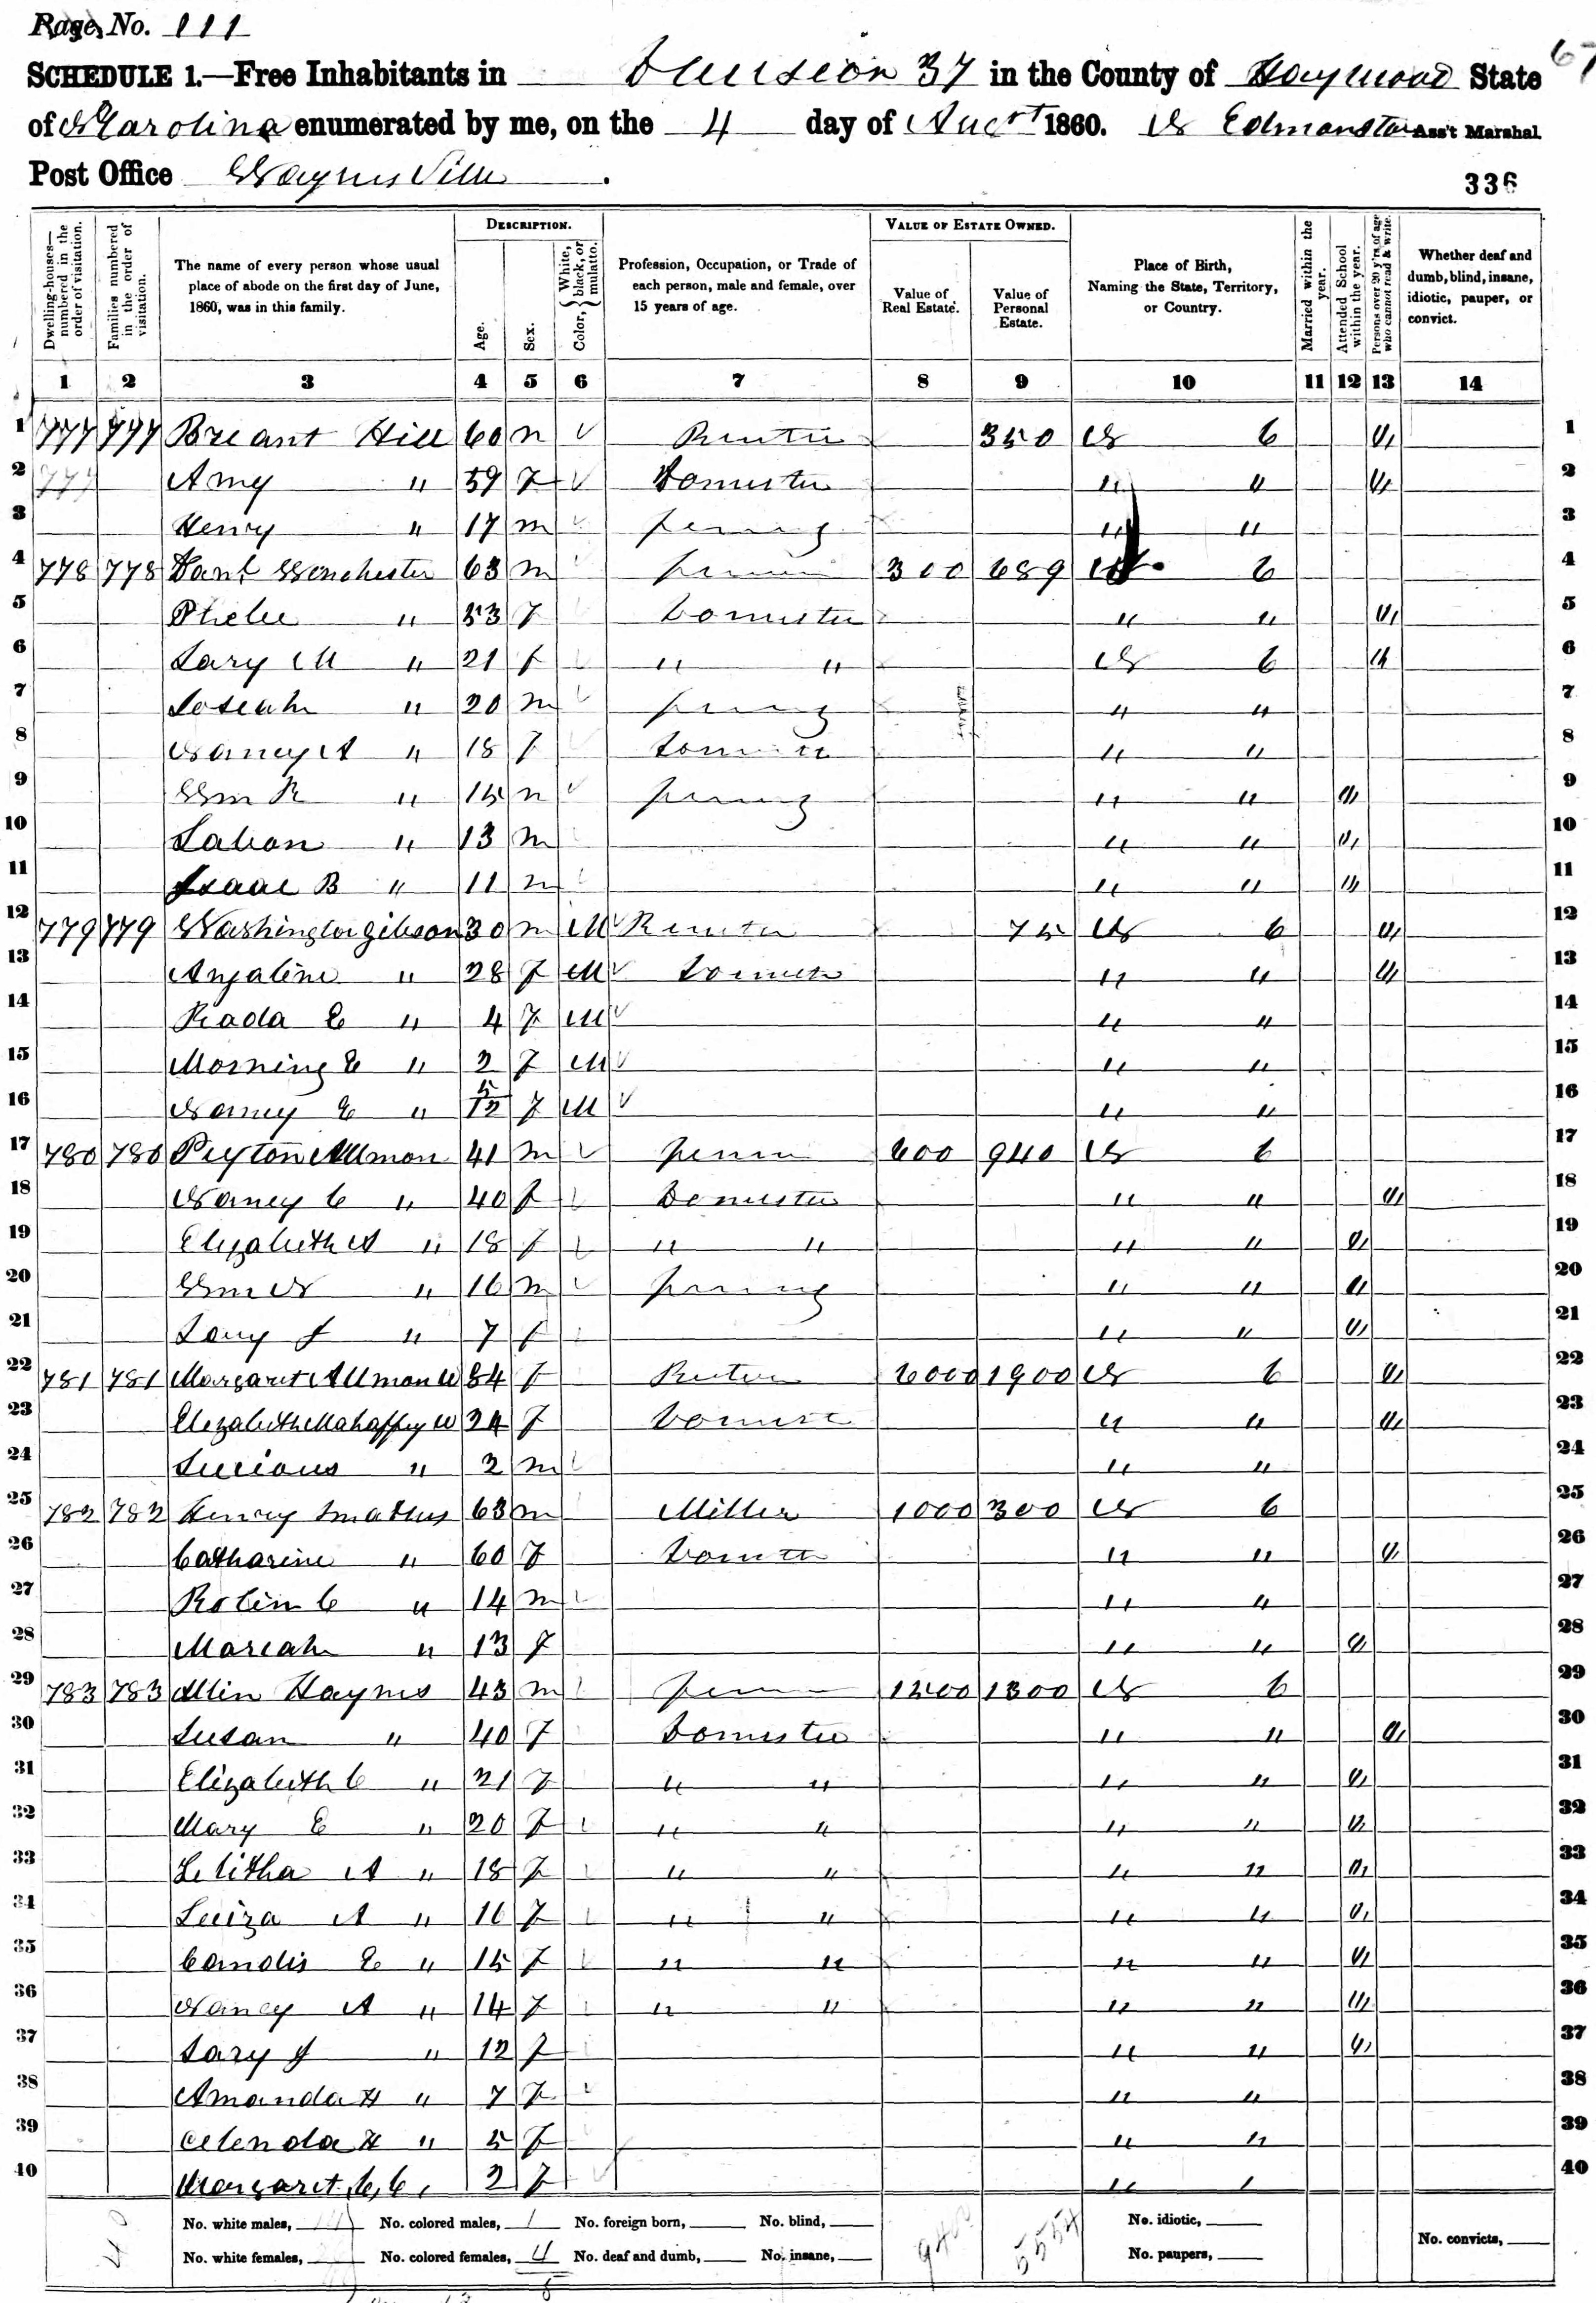 Page No. 111
SCHEDULE 1.—Free Inhabitants in Division 37 in the County of Haywood State 67
of N Carolina enumerated by me, on the 4 day of Augst 1860. Edmonston Ass't Marshal.
Post Office Waynesville
336
Dwelling-houses—numbered in the order of visitation.
Families numbered in the order of visitation.
The name of every person whose usual place of abode on the first day of June, 1860, was in this family.
DESCRIPTION.
Age.
Sex.
Color, White, black, or mulatto.
Profession, Occupation, or Trade of each person, male and female, over 15 years of age.
VALUE OF ESTATE OWNED.
Value of Real Estate.
Value of Personal Estate.
Place of Birth, Naming the State, Territory, or Country.
Married within the year.
Attended School within the year.
Persons over 20 y'rs of age who cannot read & write.
Whether deaf and dumb, blind, insane, idiotic, pauper, or convict.
1 2 3 4 5 6 7 8 9 10 11 12 13 14
1 777 777 Breant Hill 60 m Renter 350 N C 1 1
2 Amy " 59 f Domestic " " 1 2
3 Henry " 17 m " " 3
4 778 778 Danl Winchester 63 m 300 689 N C 4
5 Phebe " 53 f Domestic " " 1 5
6 Sary M " 21 f " " N C 1 6
7 Joseah " 20 m " " 7
8 Nancy A " 18 f Domestic " " 8
9 Wm R " 15 m " " 1 9
10 Laban " 13 m " " 1 10
11 Isaac B " 11 m " " 1 11
12 779 779 Washington Gibson 30 m M Renter 75 N C 1 12
13 Anjaline " 28 f M Domestic " " 1 13
14 Rada E " 4 f M " " 14
15 Morning E " 2 f M " " 15
16 Nancy E " 5/12 f M " " 16
17 780 780 Peyton Allman 41 m 600 940 N C 17
18 Nancy C " 40 f Domestic " " 1 18
19 Elizabeth A " 18 f " " " " 1 19
20 Wm N " 16 m " " 1 20
21 " 7 f " " 1 21
22 781 781 Margaret Allman W 84 f Renter 6000 1900 N C 1 22
23 Elizabeth Mahaffey W 24 f Domestic " " 1 23
24 Lucious " 2 m " " 24
25 782 782 Henry Smathers 63 m Miller 1000 300 N C 25
26 Catharine " 60 f Domestic " " 1 26
27 C " 14 m " " 27
28 Mariah " 13 f " " 1 28
29 783 783 Allin Haynes 43 m 1200 1300 N C 29
30 Susan " 40 f Domestic " " 1 30
31 Elizabeth C " 21 f " " " " 1 31
32 Mary E " 20 f " " " " 1 32
33 Lelitha A " 18 f " " " " 1 33
34 Luiza A " 16 f " " " " 1 34
35 Candis E " 15 f " " " " 1 35
36 Nancy A " 14 f " " " " 1 36
37 Sary J " 12 f " " 1 37
38 Amanda H " 7 f " " 38
39 H " 5 f " " 39
40 Margaret C, C, 2 f " " 40
No. white males, No. colored males, 1 No. foreign born, No. blind, No. idiotic,
No. white females, No. colored females, 4 No. deaf and dumb, No. insane, No. paupers, No. convicts,
40 9400 5554
5